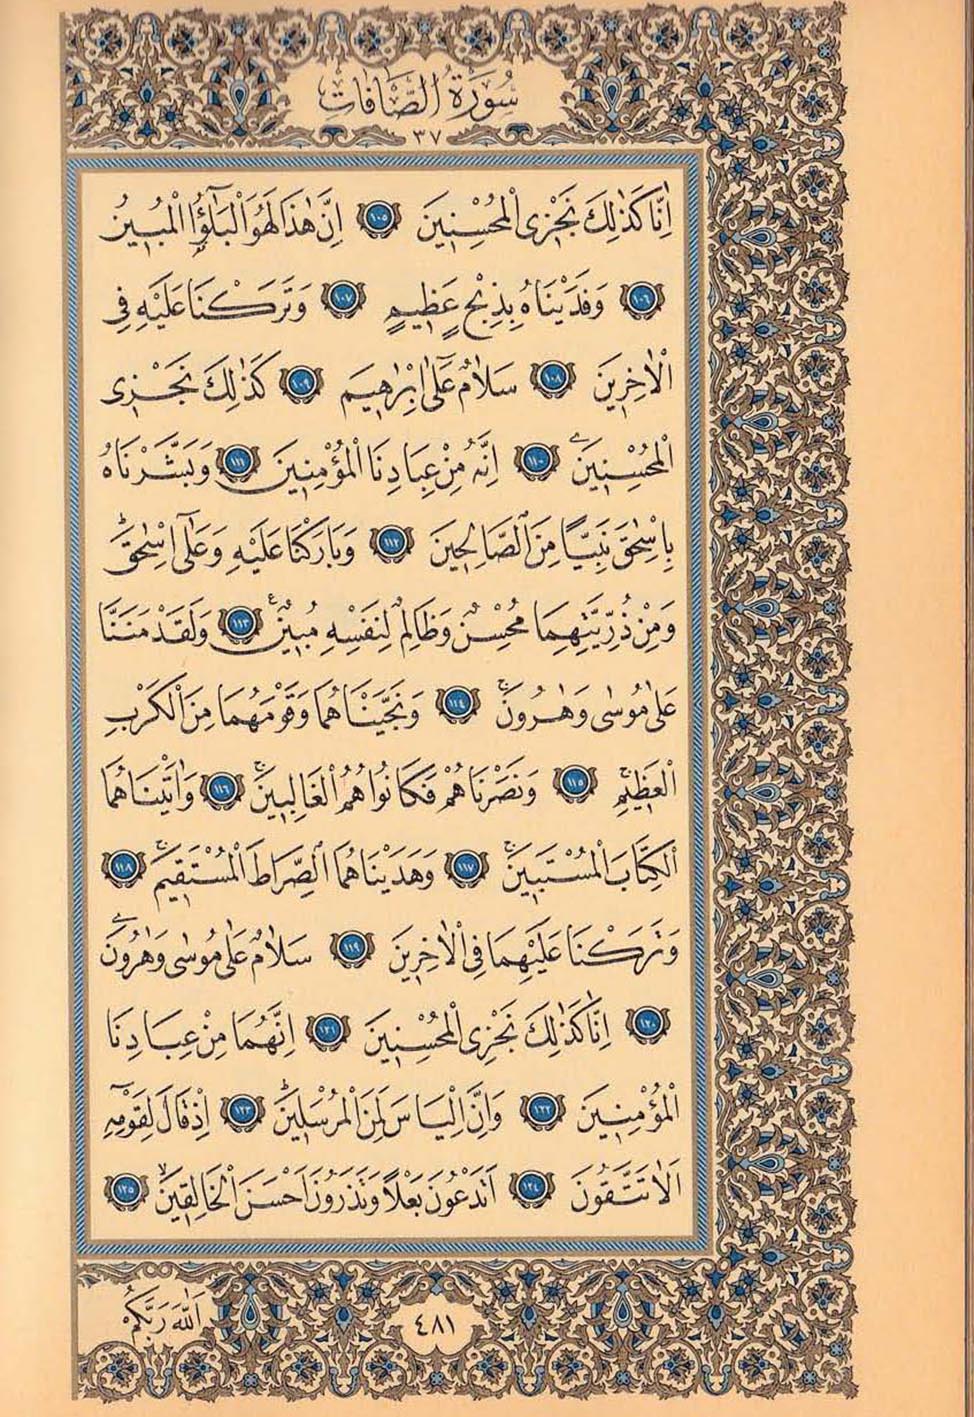 سُورَةُ الصَّافَّاتِ
٣٧
اِنَّا كَذٰلِكَ نَجْزِى الْمُحْسِنٖينَ ١٠٥ اِنَّ هٰذَا لَهُوَ الْبَلٰٓؤُا الْمُبٖينُ
١٠٦ وَفَدَيْنَاهُ بِذِبْحٍ عَظٖيمٍ ١٠٧ وَتَرَكْنَا عَلَيْهِ فِى
الْاٰخِرٖينَ ١٠٨ سَلَامٌ عَلٰٓى اِبْرٰهٖيمَ ١٠٩ كَذٰلِكَ نَجْزِى
الْمُحْسِنٖينَ ١١٠ اِنَّهُ مِنْ عِبَادِنَا الْمُؤْمِنٖينَ ١١١ وَبَشَّرْنَاهُ
بِاِسْحٰقَ نَبِيًّا مِنَ الصَّالِحٖينَ ١١٢ وَبَارَكْنَا عَلَيْهِ وَعَلٰٓى اِسْحٰقَؕ
وَمِنْ ذُرِّيَّتِهِمَا مُحْسِنٌ وَظَالِمٌ لِنَفْسِهٖ مُبٖينٌ ١١٣ وَلَقَدْ مَنَنَّا
عَلٰى مُوسٰى وَهٰرُونَۚ ١١٤ وَنَجَّيْنَاهُمَا وَقَوْمَهُمَا مِنَ الْكَرْبِ
الْعَظٖيمِۚ ١١٥ وَنَصَرْنَاهُمْ فَكَانُوا هُمُ الْغَالِبٖينَۚ ١١٦ وَاٰتَيْنَاهُمَا
الْكِتَابَ الْمُسْتَبٖينَۚ ١١٧ وَهَدَيْنَاهُمَا الصِّرَاطَ الْمُسْتَقٖيمَۚ ١١٨
وَتَرَكْنَا عَلَيْهِمَا فِى الْاٰخِرٖينَ ١١٩ سَلَامٌ عَلٰى مُوسٰى وَهٰرُونَ
١٢٠ اِنَّا كَذٰلِكَ نَجْزِى الْمُحْسِنٖينَ ١٢١ اِنَّهُمَا مِنْ عِبَادِنَا
الْمُؤْمِنٖينَ ١٢٢ وَاِنَّ اِلْيَاسَ لَمِنَ الْمُرْسَلٖينَؕ ١٢٣ اِذْ قَالَ لِقَوْمِهٖٓ
اَلَا تَتَّقُونَ ١٢٤ اَتَدْعُونَ بَعْلًا وَتَذَرُونَ اَحْسَنَ الْخَالِقٖينَۙ ١٢٥
٤٨١
اَللّٰهَ رَبَّكُمْ